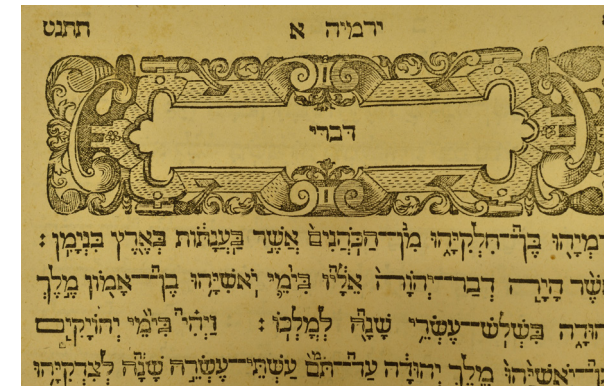 ירמיה א תתנט
דברי
בֶּן־חִלְקִיָּהוּ מִן־הַכֹּהֲנִים אֲשֶׁר בַּעֲנָתוֹת בְּאֶרֶץ בִּנְיָמִן :
הָיָה דְבַר־יְהוָה אֵלָיו בִּימֵי יֹאשִׁיָּהוּ בֶן־אָמוֹן מֶלֶךְ
בִּשְׁלֹשׁ־עֶשְׂרֵה שָׁנָה לְמָלְכוֹ : וַיְהִי בִּימֵי יְהוֹיָקִים
יֹאשִׁיָּהוּ מֶלֶךְ יְהוּדָה עַד־תֹּם עַשְׁתֵּי־עֶשְׂרֵה שָׁנָה לְצִדְקִיָּהוּ